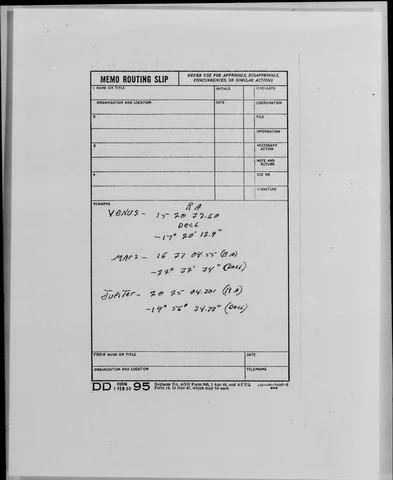 MEMO ROUTING SLIP
NEVER USE FOR APPROVALS, DISAPPROVALS,
CONCURRENCES, OR SIMILAR ACTIONS
1 NAME OR TITLE
INITIALS
CIRCULATE
ORGANIZATION AND LOCATION
DATE
COORDINATION
2
FILE
INFORMATION
3
NECESSARY
ACTION
NOTE AND
RETURN
4
SEE ME
SIGNATURE
REMARKS
RA
Venus - 15 20 32.60
Decl
-17° 20' 12.9"
Mars - 16 27 04.55 (RA)
-22° 32' 34" (Decl)
Jupiter - 20 25 04.301 (RA)
-19° 56' 34.79" (Decl)
FROM NAME OR TITLE
DATE
ORGANIZATION AND LOCATION
TELEPHONE
DD FORM 1 FEB 50 95 Replaces DA AGO Form 895, 1 Apr 48, and AFHQ
Form 12, 10 Nov 47, which may be used.